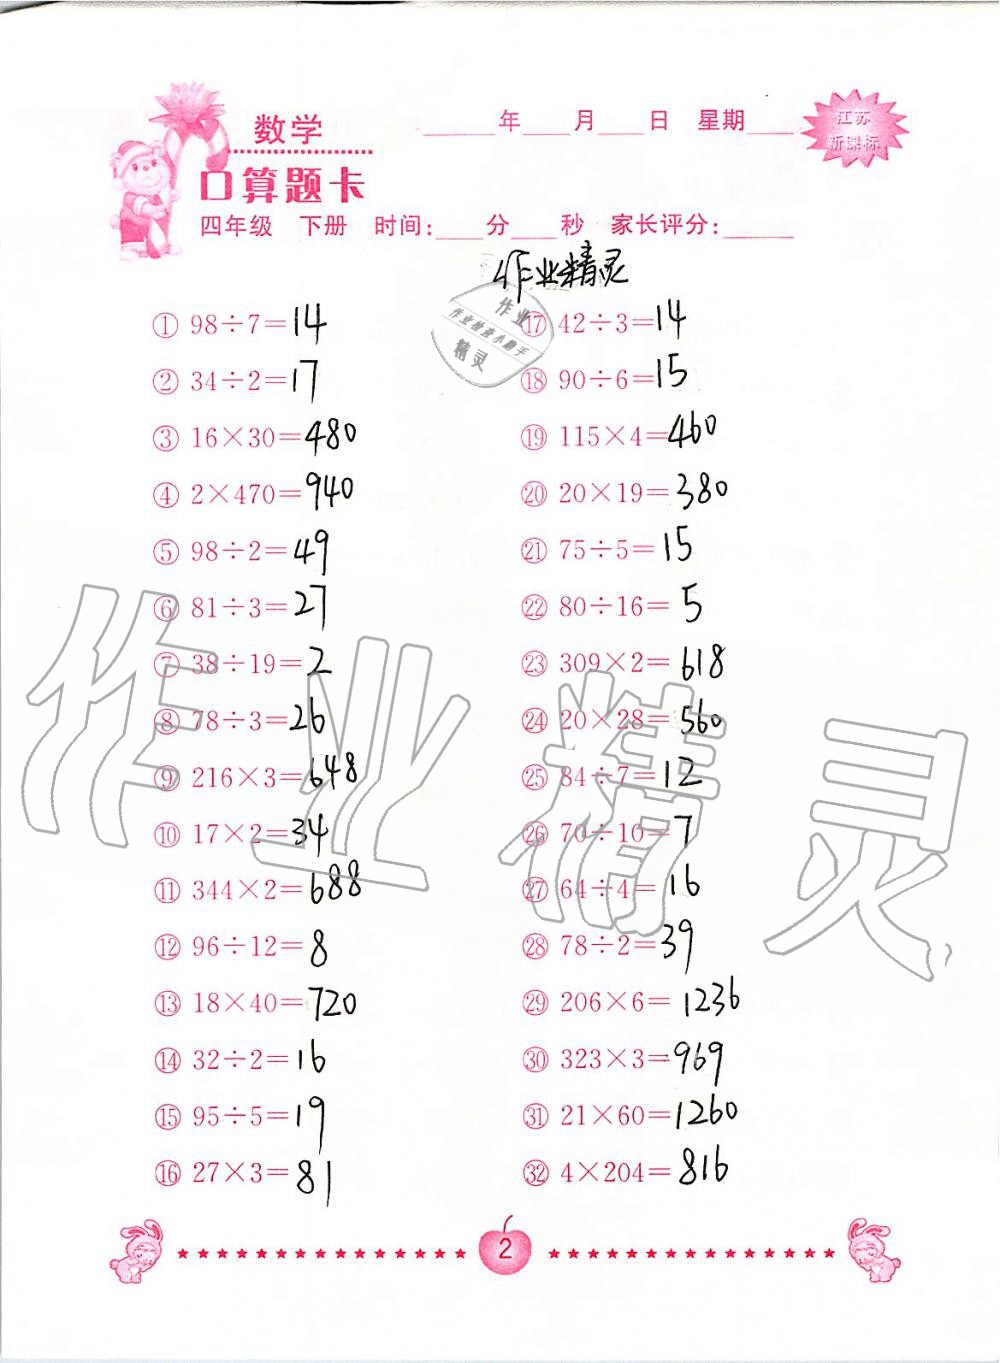 数学
____年____月____日 星期____
江苏
新课标
口算题卡
四年级 下册 时间:____分____秒 家长评分:____
作业精灵
作业
作业检查小助手
精灵
① 98÷7=14
② 34÷2=17
③ 16×30=480
④ 2×470=940
⑤ 98÷2=49
⑥ 81÷3=27
⑦ 38÷19=2
⑧ 78÷3=26
⑨ 216×3=648
⑩ 17×2=34
⑪ 344×2=688
⑫ 96÷12=8
⑬ 18×40=720
⑭ 32÷2=16
⑮ 95÷5=19
⑯ 27×3=81
⑰ 42÷3=14
⑱ 90÷6=15
⑲ 115×4=460
⑳ 20×19=380
㉑ 75÷5=15
㉒ 80÷16=5
㉓ 309×2=618
㉔ 20×28=560
㉕ 84÷7=12
㉖ 70÷10=7
㉗ 64÷4=16
㉘ 78÷2=39
㉙ 206×6=1236
㉚ 323×3=969
㉛ 21×60=1260
㉜ 4×204=816
作业精灵
2